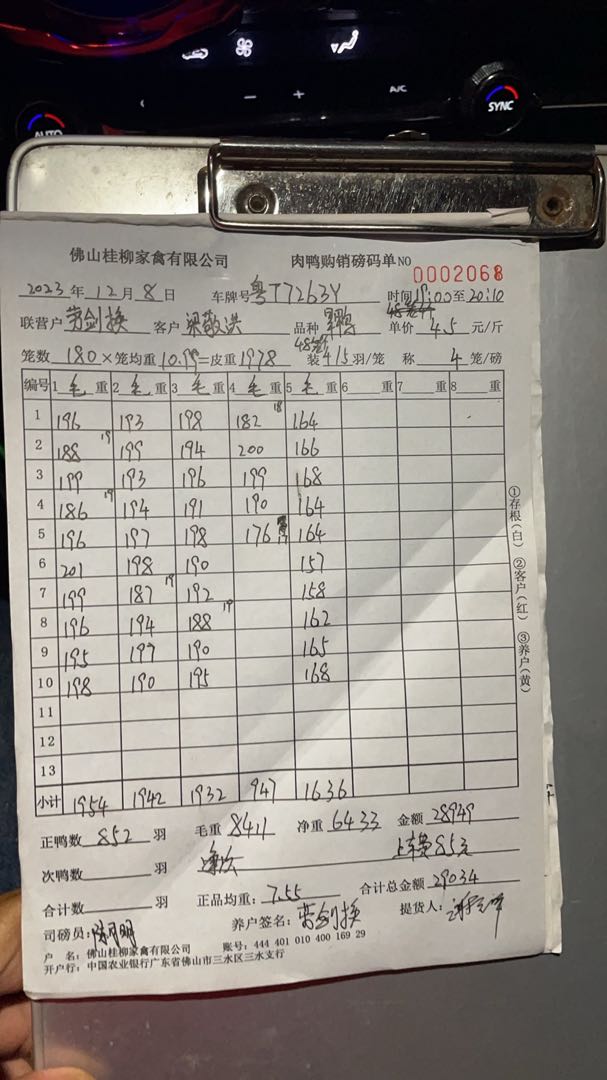 A/C
SYNC
AUTO
佛山桂柳家禽有限公司 肉鸭购销磅码单 NO 0002068
2023年12月8日 车牌号 粤T7263Y 时间 19:00至20:10
联营户 劳剑换 客户 梁敬洪 品种 单价 4.5 元/斤
笼数 180×笼均重 10.99=皮重 1978 装 4/5 羽/笼 称 4 笼/磅
编号 1 毛 重 2 毛 重 3 毛 重 4 毛 重 5 毛 重 6 重 7 重 8 重
1 196 193 198 182 18 164
2 188 19 199 194 200 166
3 199 193 196 199 168
4 186 19 194 191 190 164
5 196 197 198 176 164
6 201 198 190 157
7 199 187 19 192 158
8 196 194 188 19 162
9 195 197 190 165
10 198 190 195 168
11
12
13
小计 1954 1942 1932 947 1636
①存根(白) ②客户(红) ③养户(黄)
正鸭数 852 羽 毛重 8411 净重 6433 金额 28949
次鸭数 羽 上车费85元
合计数 羽 正品均重: 7.55 合计总金额 29034
司磅员: 养户签名: 劳剑换 提货人:
户 名: 佛山桂柳家禽有限公司 账号: 444 401 010 400 169 29
开户行: 中国农业银行广东省佛山市三水区三水支行